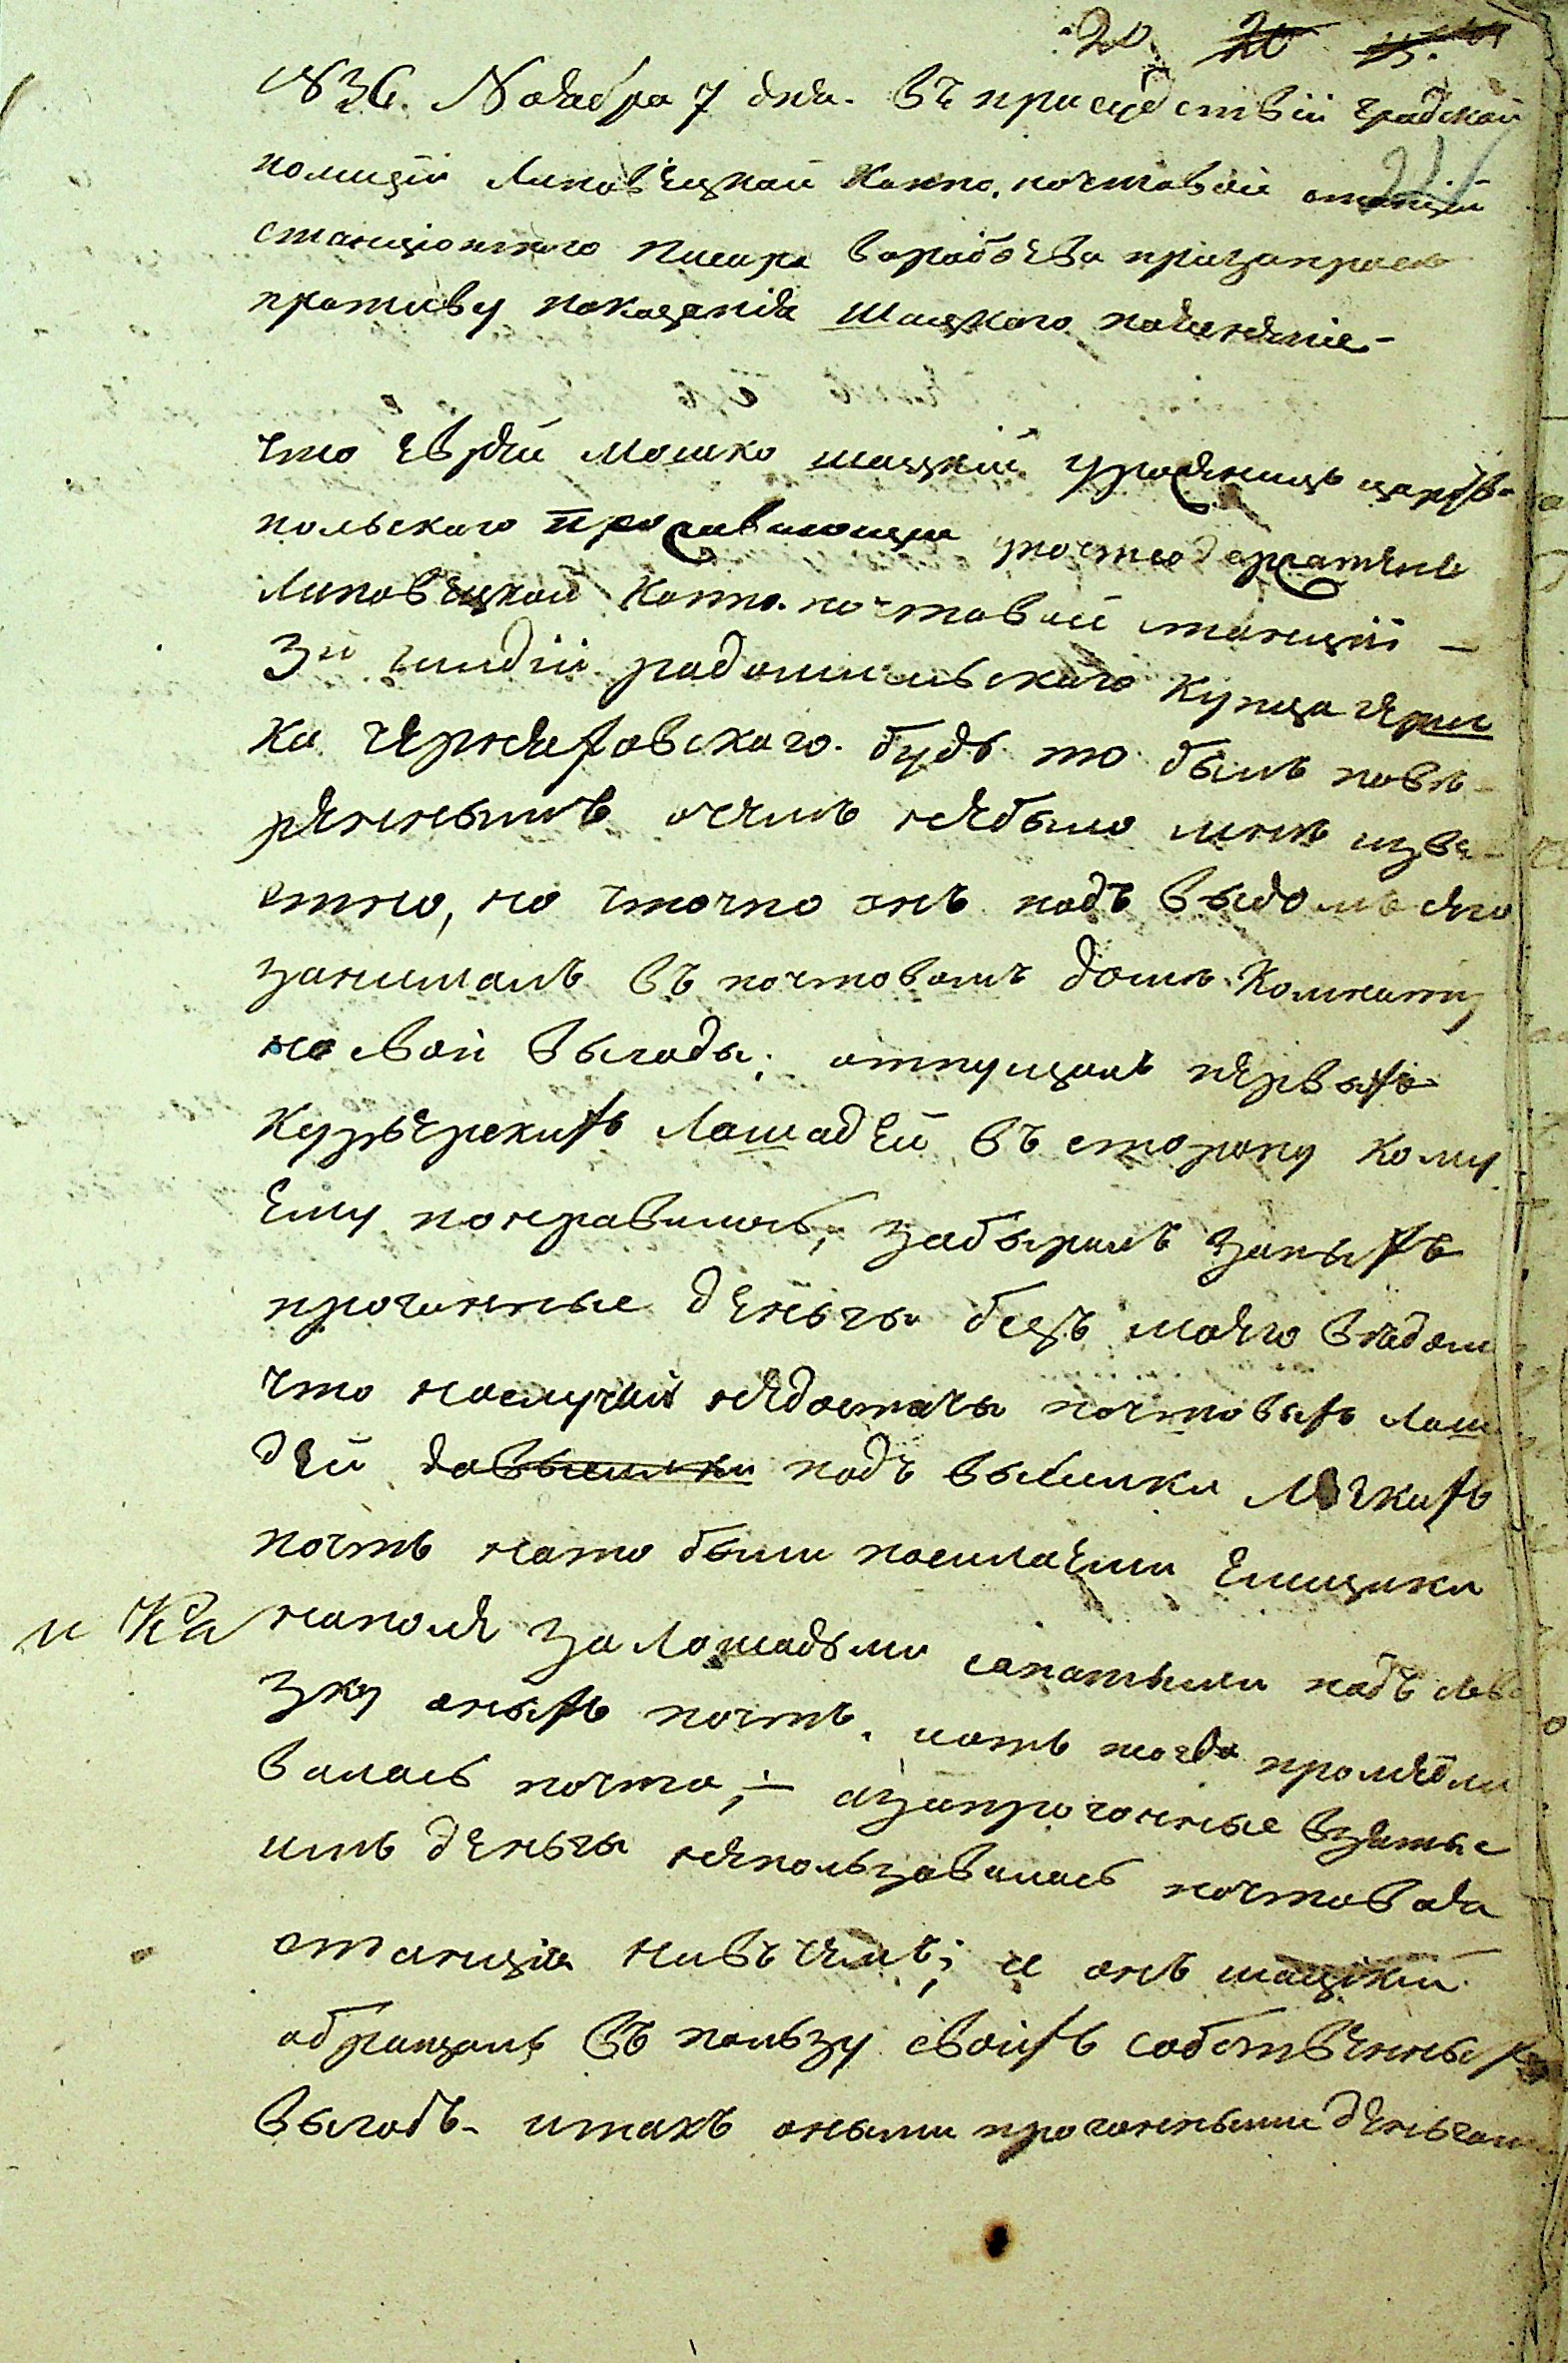 20. 20
1836. Ноября 7 дня. Въ присудствіи градской
полиціи Липовѣцкой Конно. почтовой станціи
станціоннаго писаря воробьева призапросѣ
противу показанія Шацкаго поясненіе-
что Еврей Мошко шацкій урядникъ
польскаго проживающи почтосодержателѣ
Липовѣцкой Конно. почтовой станціи -
3й гилдіи радомисльскаго купца
ка черняховскаго. будь то былъ повѣ-
ряннымъ очемъ небыло мнѣ изве-
стно, но точно онъ подъ выдомъ его
занималъ въ почтовомъ домѣ комнату
на свои выгоды; отпущалъ первыхъ
курьерскихъ Лошадей въ сторону кому
Ему понравилось, забыралъ заныхъ
прогонные деньги безъ моего вѣдом
что наслучай недостачи почтовыхъ лош
дей подъ высылки Легкихъ
почтъ нато были посилаеми Емщики
и на наполе за Лошадьми сапатыми подъ
зку оныхъ почтъ. тогда промедли
валась почта; - азапрогонные взятые
имъ деньги непользовалась почтовая
станція нивъ чемъ; и онъ шацкій
обращалъ въ пользу своихъ собственных
выгодъ- итакъ оными прогонными деньгами